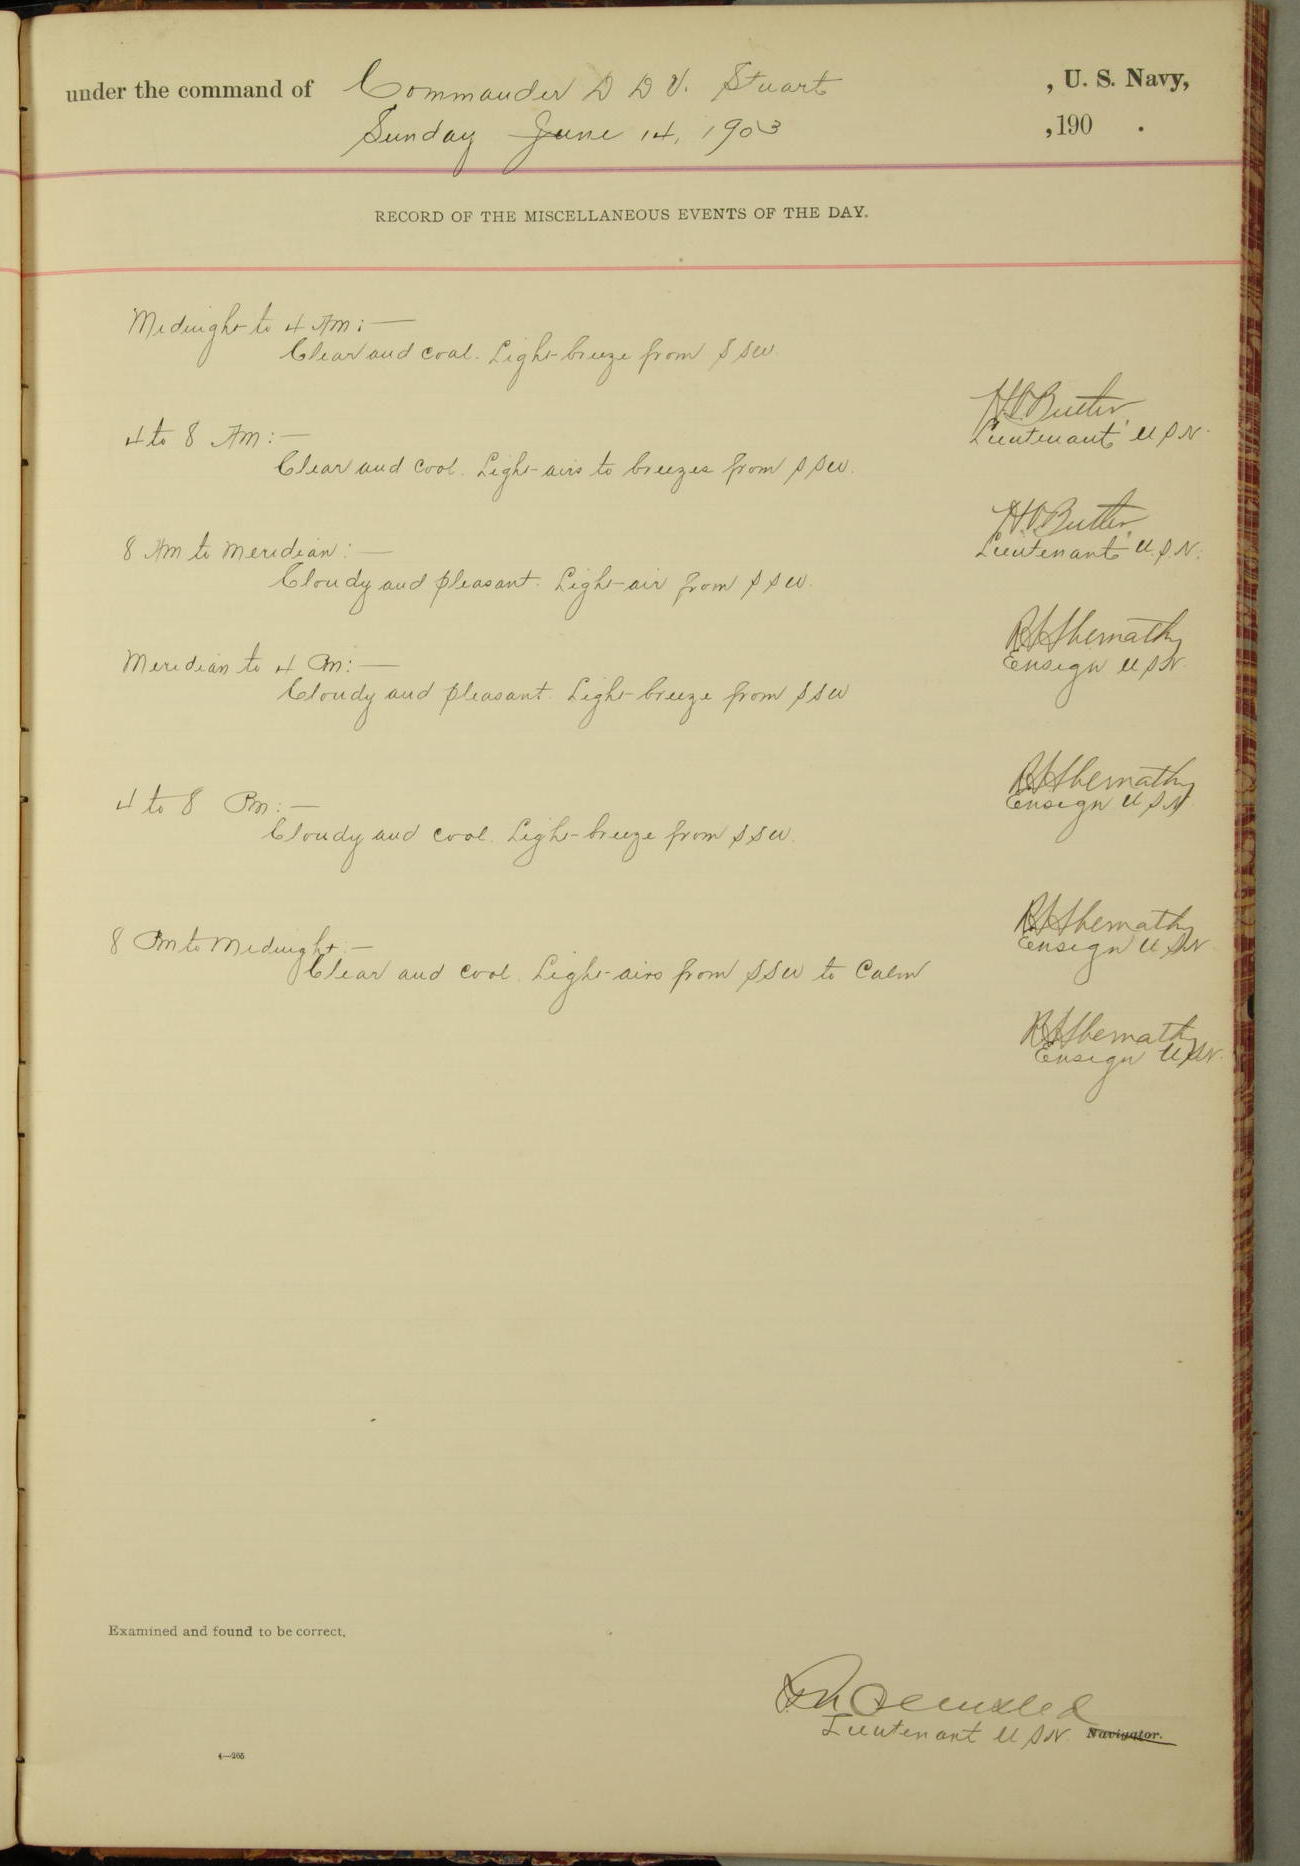 under the command of Commander D D V. Stuart , U. S. Navy,
Sunday June 14, 1903 , 190 .
RECORD OF THE MISCELLANEOUS EVENTS OF THE DAY.
Midnight to 4 Am: —
Clear and cool. Light breeze from SSW.
H.V. Butler
Lieutenant U S N.
4 to 8 Am: —
Clear and cool. Light airs to breezes from SSW.
H.V. Butler
Lieutenant U.S.N.
8 Am to Meridian: —
Cloudy and pleasant. Light air from SSW.
Abernathy
Ensign U S N.
Meridian to 4 Pm: —
Cloudy and pleasant. Light breeze from SSW
Abernathy
Ensign U S N.
4 to 8 Pm: —
Cloudy and cool. Light breeze from SSW.
Abernathy
Ensign U S N.
8 Pm to Midnight: —
Clear and cool. Light airs from SSW to Calm
Abernathy
Ensign U S N.
Examined and found to be correct,
Lieutenant U S N. Navigator.
4—265